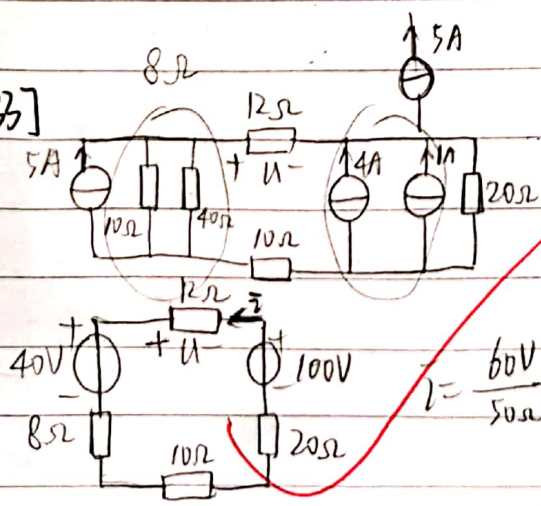 5A
8Ω
12Ω
5A
+ U -
4A
1A
20Ω
10Ω
40Ω
10Ω
12Ω
i
+
+ U -
+
40V
100V
i = 60V / 50Ω
-
-
8Ω
20Ω
10Ω